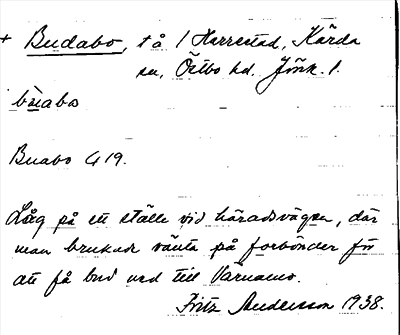 + Budabo, t å 1 Harrestad, Kärda
sn, Östbo hd. Jönk. l.
bùabo
Buabo G 19.
Låg på ett ställe vid häradsvägen, där
man brukade vänta på forbönder för
att få bud ned till Värnamo.
Fritz Andersson 1938.